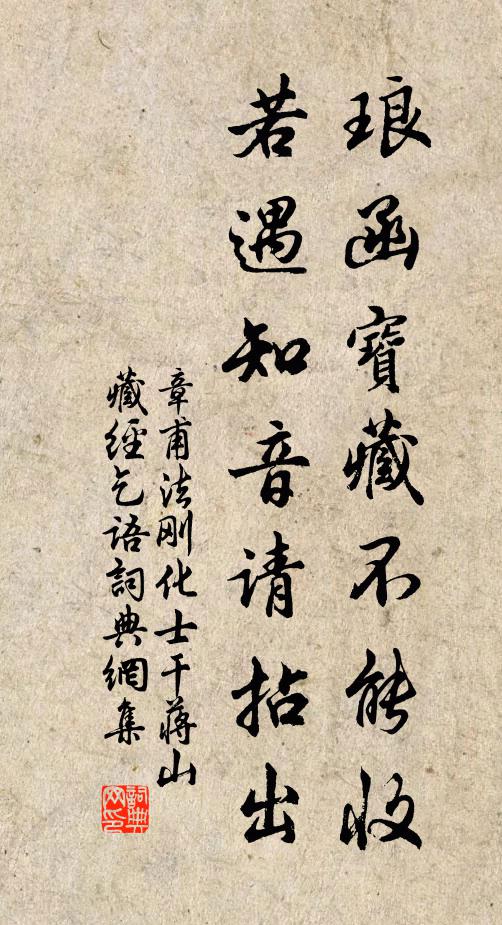 琅函寶藏不能收
若遇知音请拈出
章甫法刚化士干蔣山
藏經乞语詞典網集
詞典网印